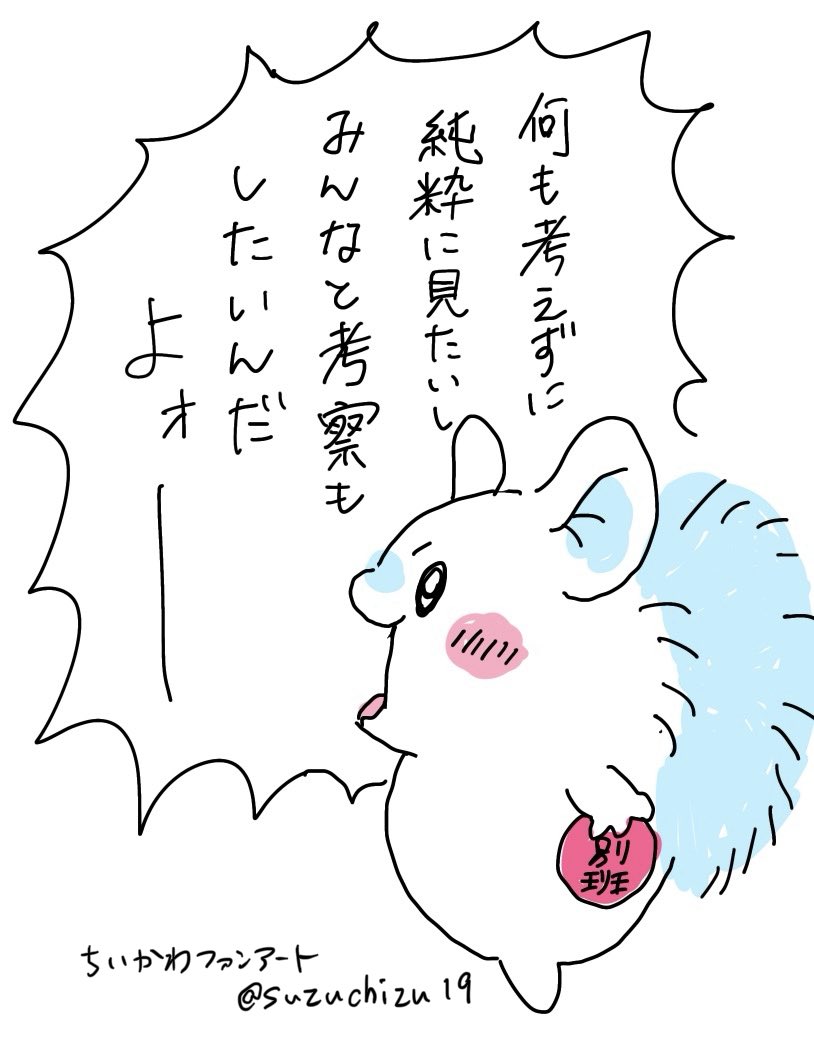 何も考えずに
純粋に見たいし
みんなと考察も
したいんだ
よォー
別
班
ちいかわファンアート
@suzuchizu19